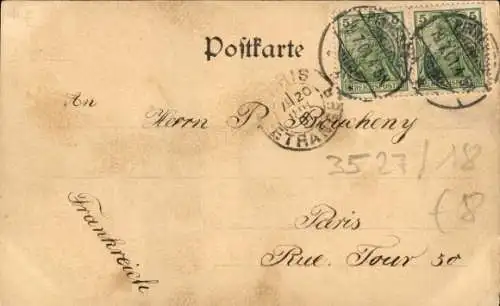 Postkarte
5 5
5 5
PARIS
20
ETRANGER
An
Herrn P. Boucheny
3527/18
Frankreich
Paris
Rue. Tour 50